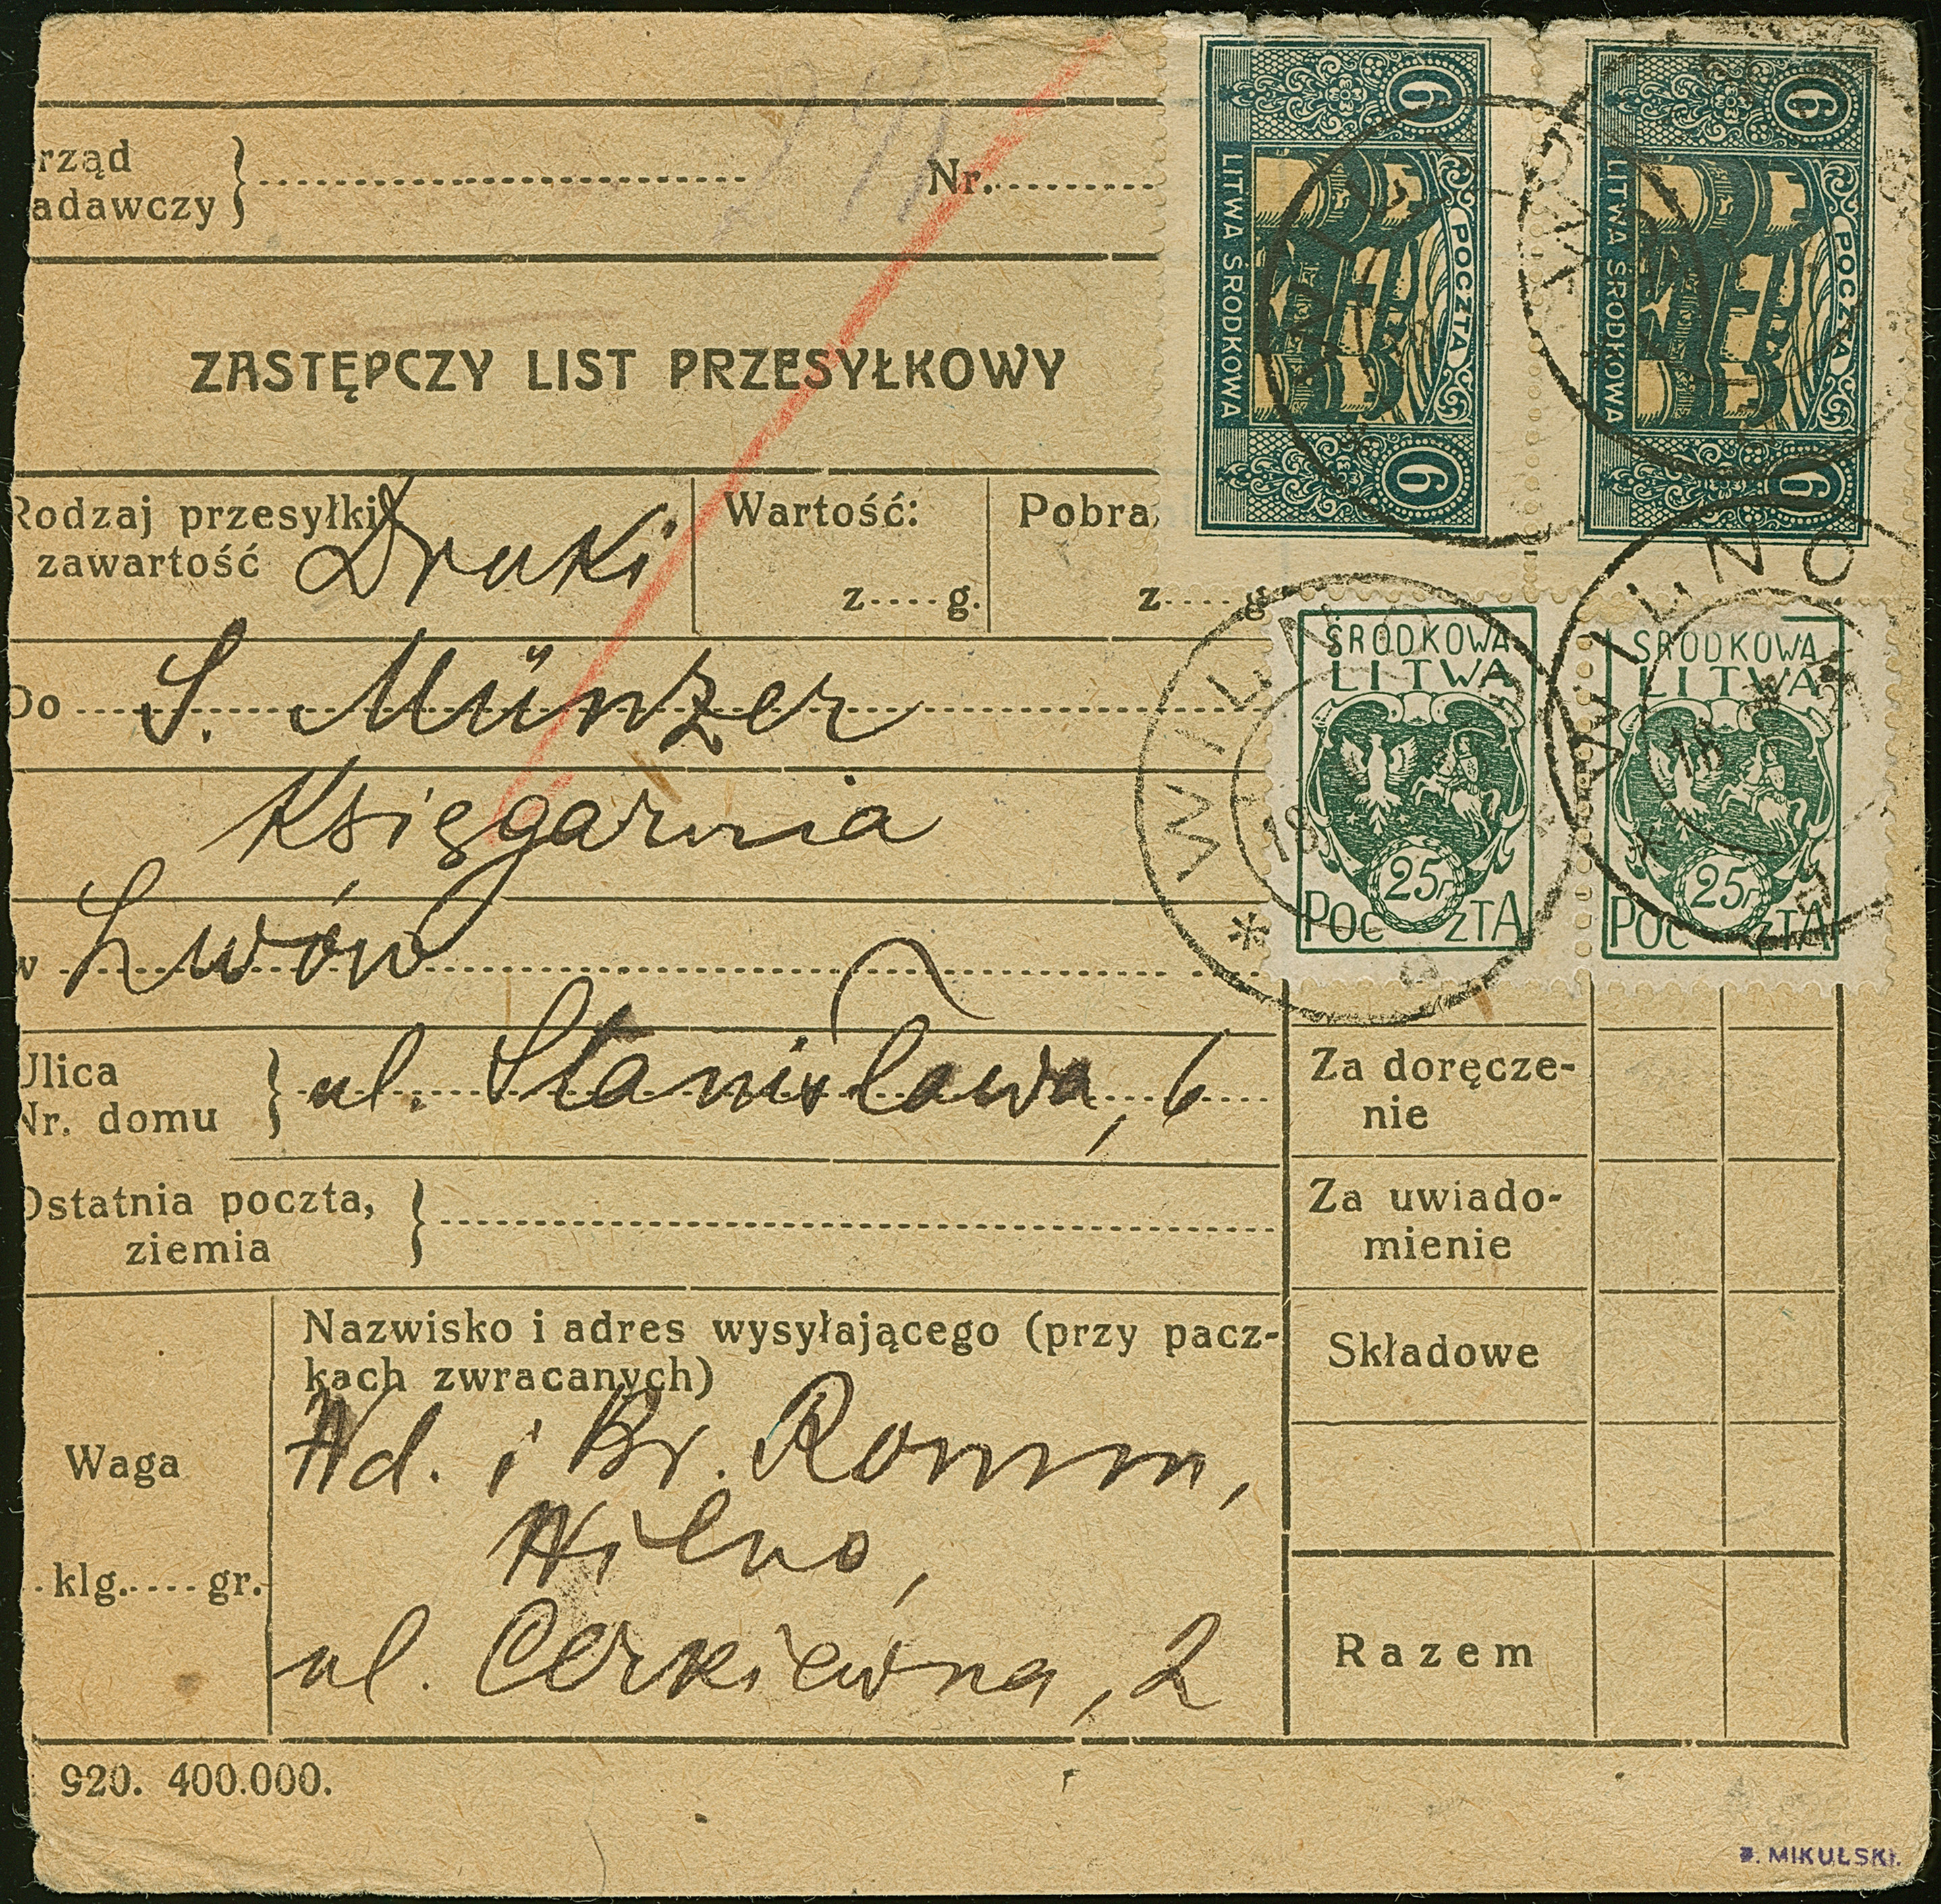 rząd
adawczy
Nr.
6 6
POCZTA
LITWA ŚRODKOWA
6 6
POCZTA
LITWA ŚRODKOWA
ZASTĘPCZY LIST PRZESYŁKOWY
Rodzaj przesyłki
zawartość
Druki
Wartość:
z.....g.
Pobra
z.....g
Do S. Münzer
Księgarnia
w Lwów
Ulica
Nr. domu
ul. Stanisława, 6
Ostatnia poczta,
ziemia
WILNO
WILNO
WILNO
ŚRODKOWA
LITWA
25
POCZTA
ŚRODKOWA
LITWA
25
POCZTA
Za doręcze-
nie
Za uwiado-
mienie
Składowe
Razem
Waga
klg..... gr.
Nazwisko i adres wysyłającego (przy pacz-
kach zwracanych)
Ad. i Br. Romm,
Wilno,
ul. Cerkiewna, 2
920. 400.000.
MIKULSKI.